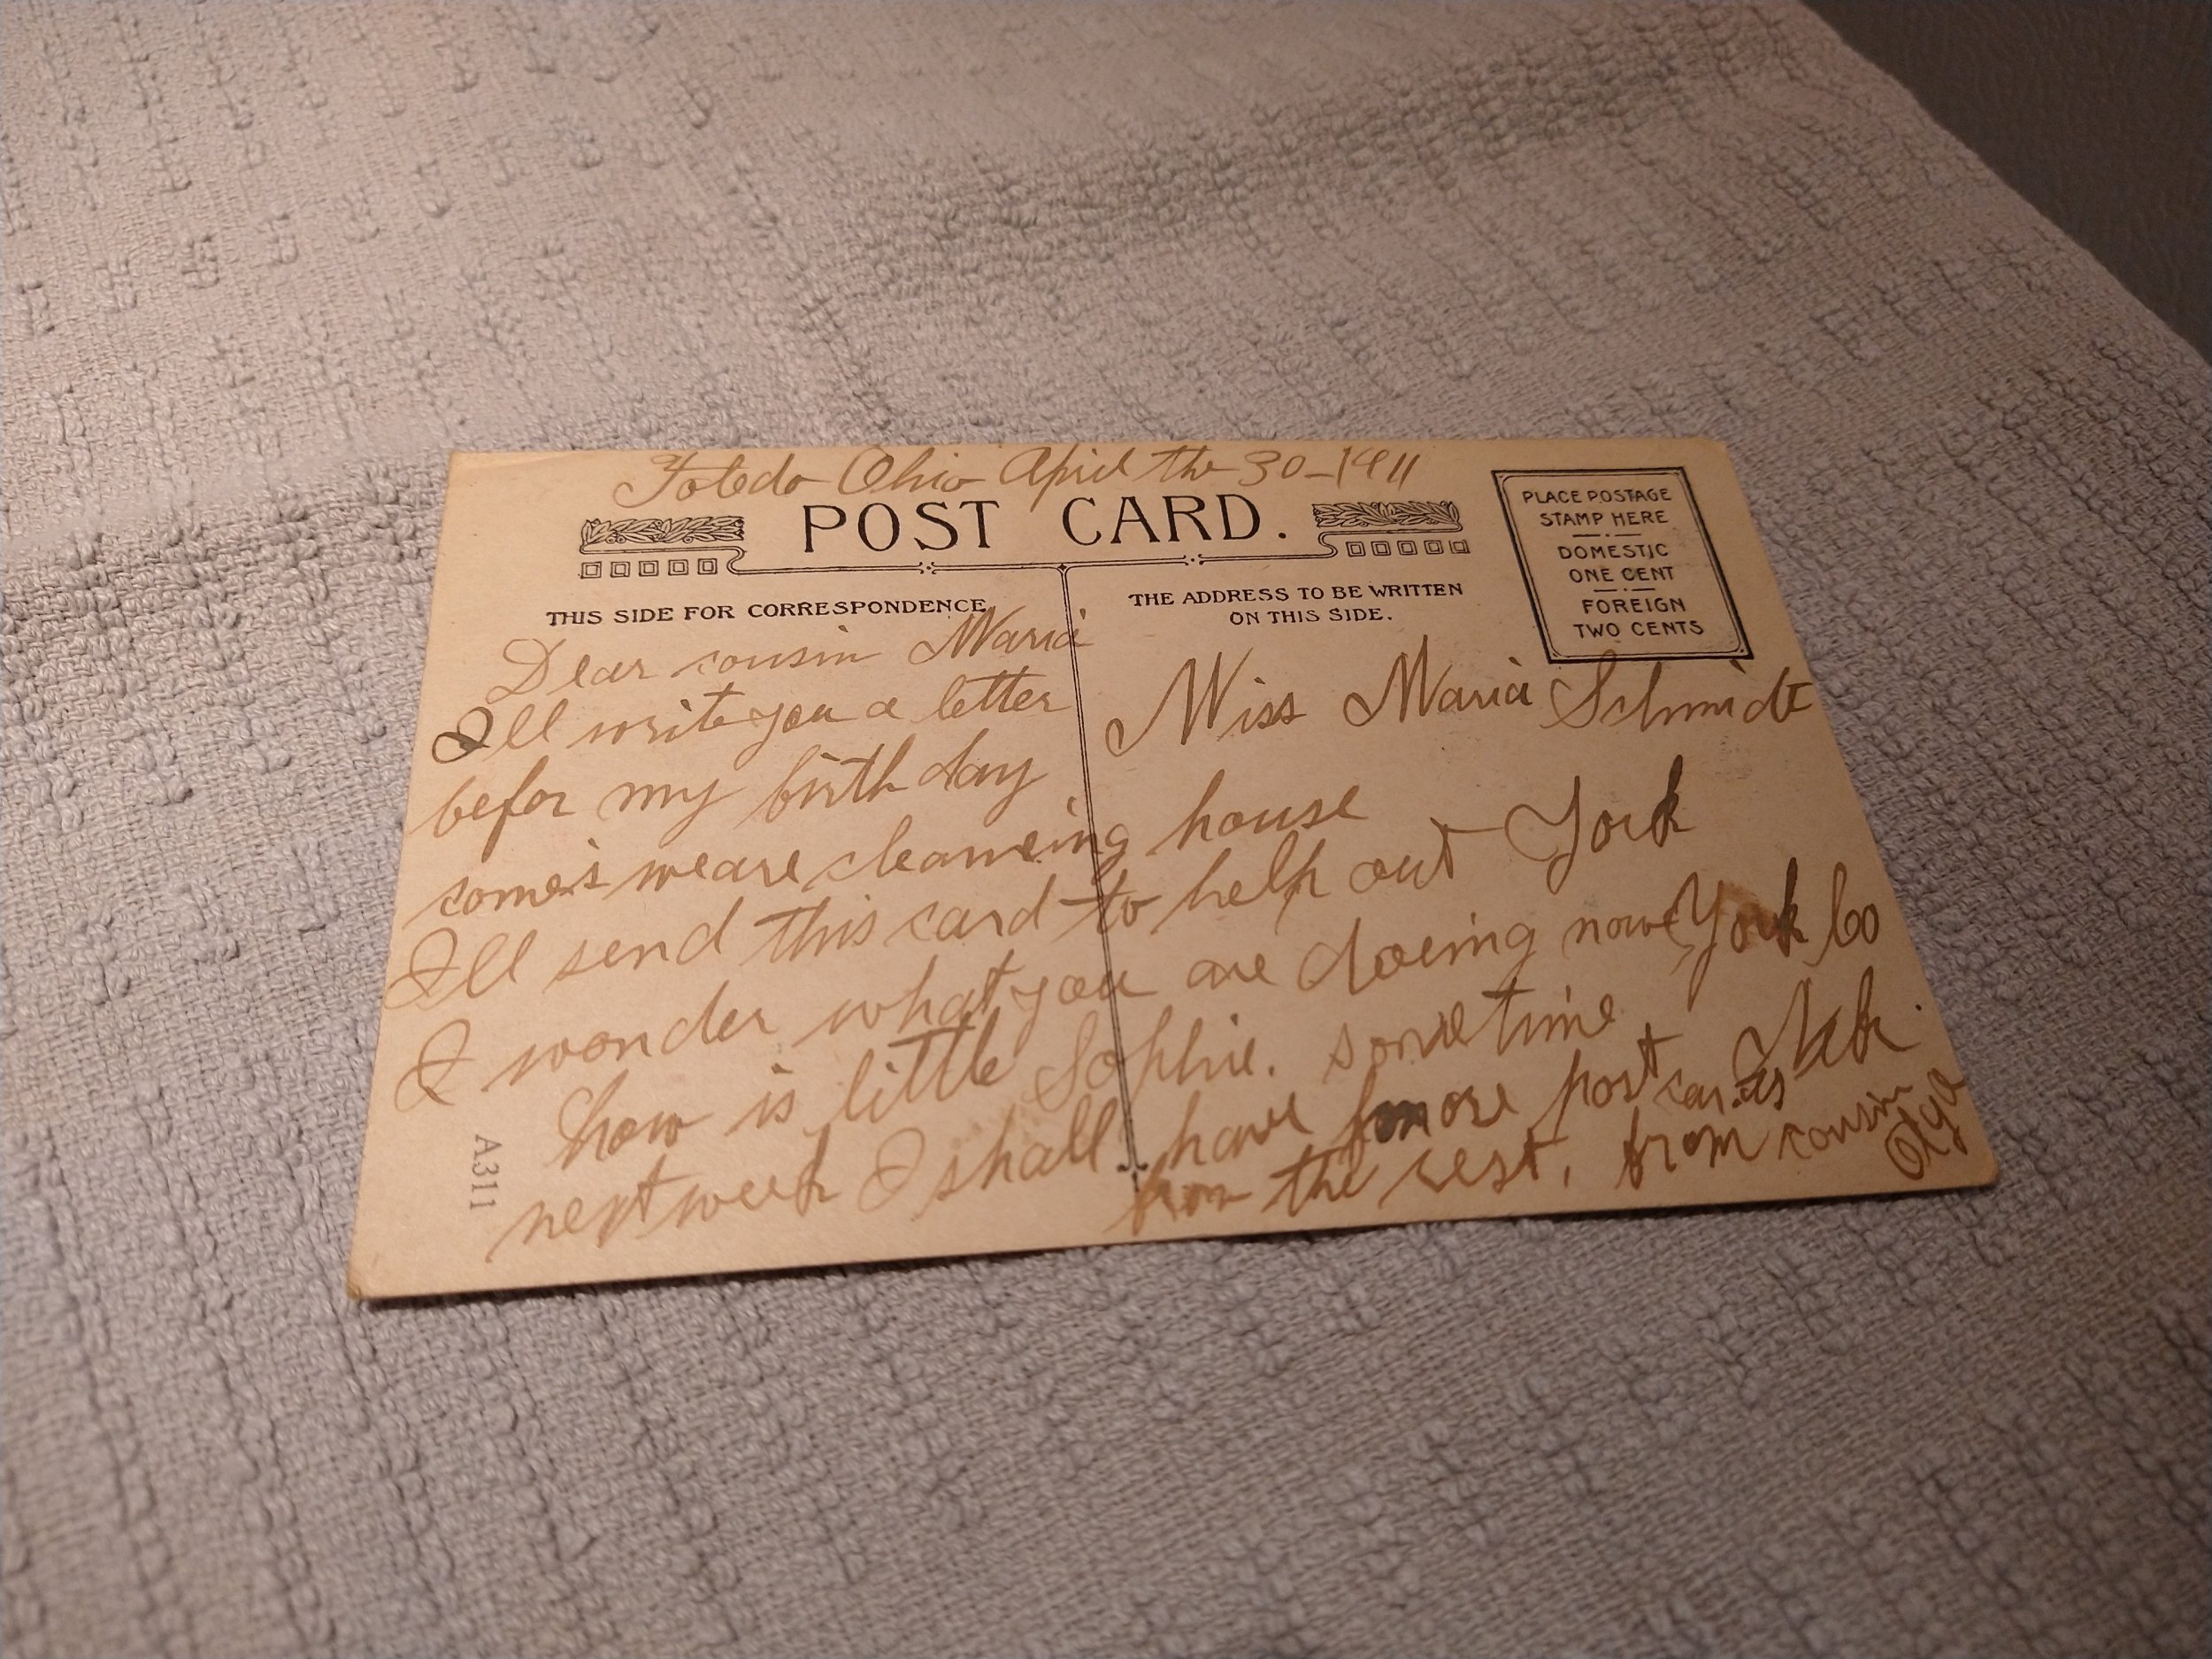 Toledo Ohio April the 30-1911
POST CARD.
PLACE POSTAGE
STAMP HERE
DOMESTIC
ONE CENT
FOREIGN
TWO CENTS
THIS SIDE FOR CORRESPONDENCE
THE ADDRESS TO BE WRITTEN
ON THIS SIDE.
Dear cousin Maria
I'll write you a letter
befor my birth day
comes weare cleaneing house
I'll send this card to help out
I wonder what you are doeing now
how is little Sophie. sometime
next week I shall have more post cards
from the rest, from cousin
Olga
Miss Maria Schmidt
York
York Co
Neb.
A311